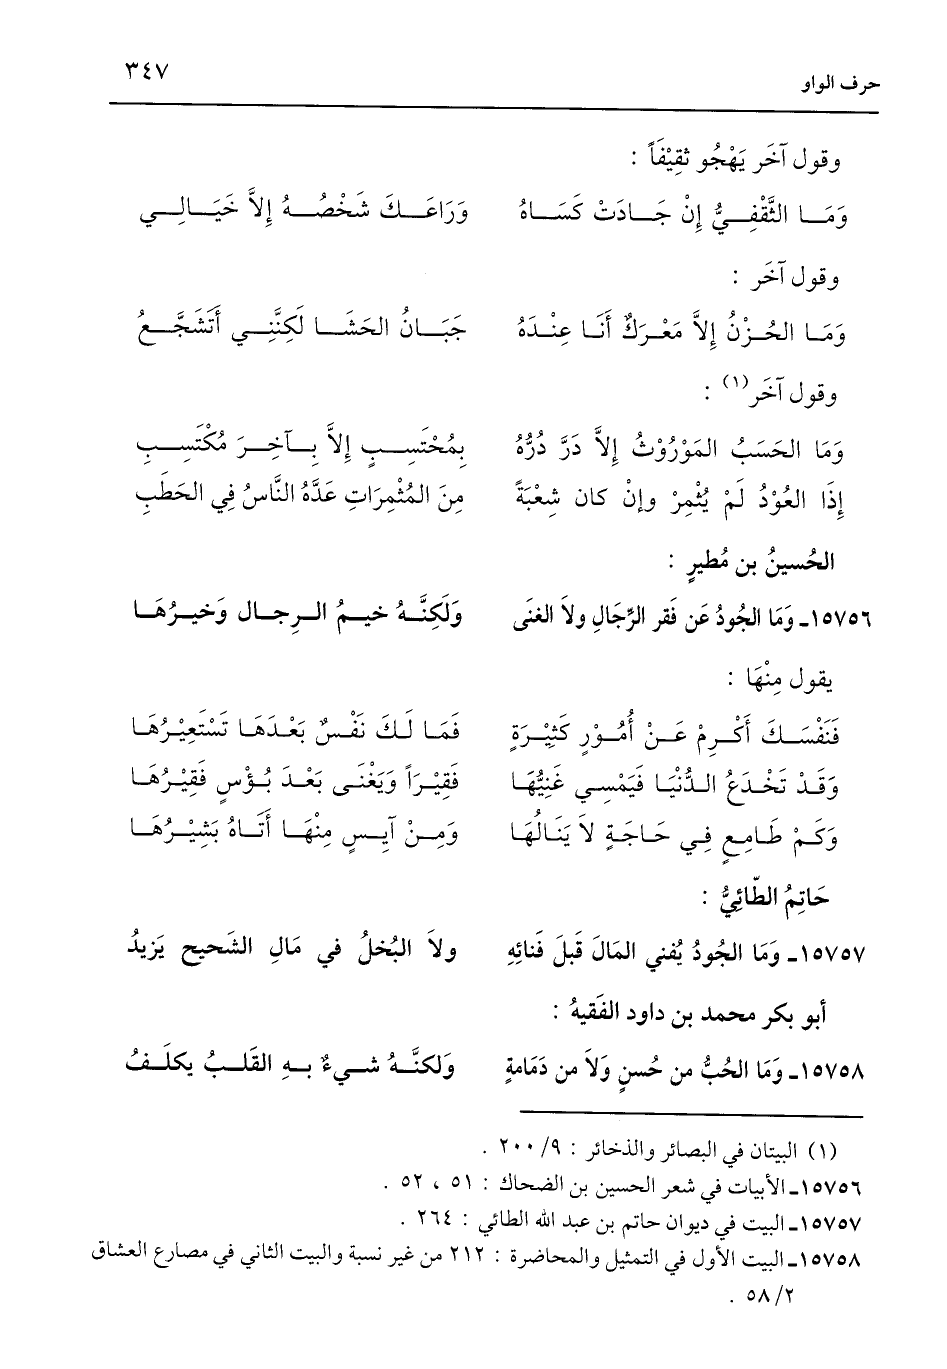 حرف الواو ٣٤٧
وقول آخَر يَهْجُو ثَقِيْفَاً :
وَمَـا الثَّقْفِـيُّ إِنْ جَـادَتْ كَسَـاهُ وَرَاعَـكَ شَخْصُـهُ إِلاَّ خَيَـالِـي
وقول آخَر :
وَمَـا الحُـزْنُ إِلاَّ مَعْـرَكٌ أَنَـا عِنْـدَهُ جَبَـانُ الحَشَـا لَكِنَّنِـي أَتَشَجَّـعُ
وقول آخَر(١) :
وَمَا الحَسَبُ المَوْرُوْثُ إِلاَّ دَرَّ دُرُّهُ بِمُحْتِسِـبٍ إِلاَّ بِـآخِـرَ مُكْتَسِـبِ
إِذَا العُوْدُ لَمْ يُثْمِرْ وإِنْ كان شِعْبَةً مِنَ المُثْمِرَاتِ عَدَّهُ النَّاسُ فِي الحَطَبِ
الحُسينُ بن مُطيرٍ :
١٥٧٥٦ـ وَمَا الجُودُ عَن فَقر الرِّجَالِ ولاَ الغنَى وَلَكِنَّـهُ خيـمُ الـرجـال وَخيـرُهَـا
يقول مِنْهَا :
فَنَفْسَـكَ أَكْـرِمْ عَـنْ أُمُـوْرٍ كَثِيْـرَةٍ فَمَـا لَـكَ نَفْـسٌ بَعْـدَهَـا تَسْتَعِيْـرُهَـا
وَقَـدْ تَخْـدَعُ الـدُّنْيَـا فَيَمْسِـي غَنِيُّهَـا فَقِيْـرَاً وَيَغْنَـى بَعْـدَ بُـؤْسٍ فَقِيْـرُهَـا
وَكَـمْ طَـامِـعٍ فِـي حَـاجَـةٍ لاَ يَنَـالُهَـا وَمِـنْ آيِـسٍ مِنْهَـا أَتَـاهُ بَشِيْـرُهَـا
حَاتِمُ الطّائِيُّ :
١٥٧٥٧ـ وَمَا الجُودُ يُفني المَالَ قَبلَ فَنائِهِ ولاَ البُخلُ في مَالِ الشَحيح يَزيدُ
أبو بكر محمد بن داود الفَقيهُ :
١٥٧٥٨ـ وَمَا الحُبُّ من حُسنٍ وَلاَ من دَمَامةٍ وَلكنَّـهُ شـيءٌ بـهِ القَلـبُ يكلَـفُ
(١) البيتان في البصائر والذخائر : ٩/ ٢٠٠ .
١٥٧٥٦ـ الأبيات في شعر الحسين بن الضحاك : ٥١ ، ٥٢ .
١٥٧٥٧ـ البيت في ديوان حاتم بن عبد الله الطائي : ٢٦٤ .
١٥٧٥٨ـ البيت الأول في التمثيل والمحاضرة : ٢١٢ من غير نسبة والبيت الثاني في مصارع العشاق
٢/ ٥٨ .